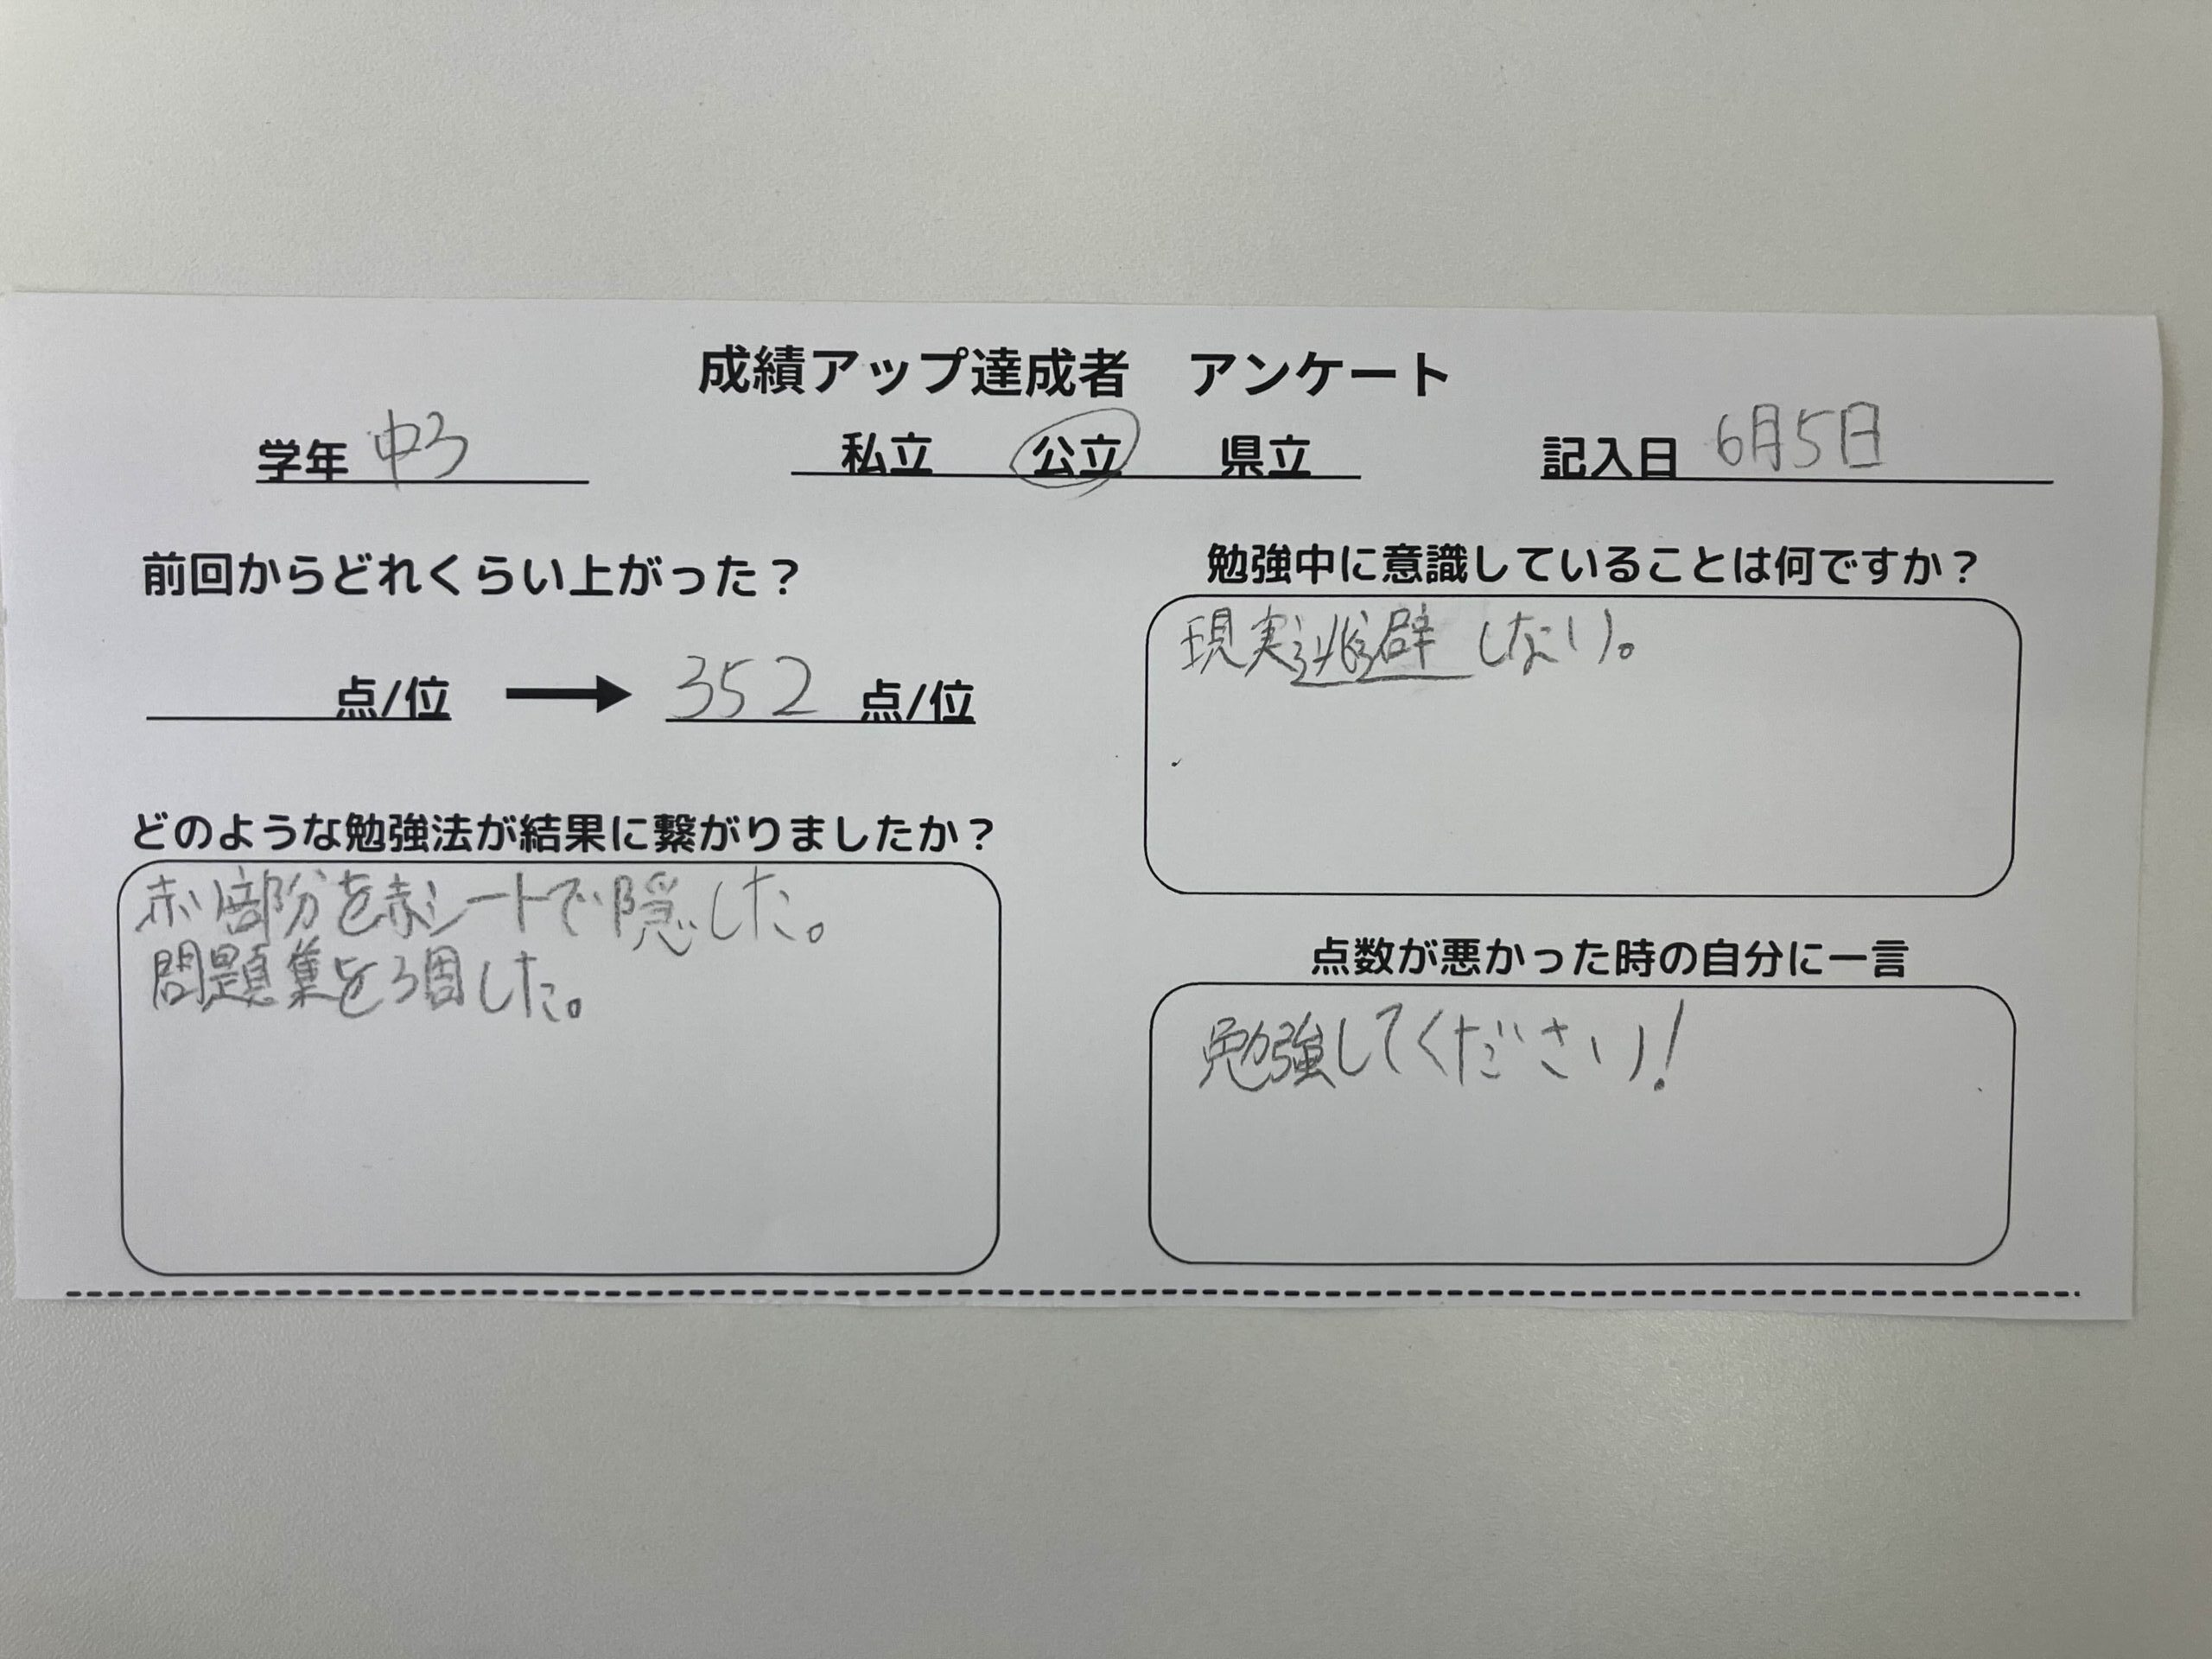 成績アップ達成者 アンケート
学年 中3 私立 公立 県立 記入日 6月5日
前回からどれくらい上がった？
点/位 → 352 点/位
どのような勉強法が結果に繋がりましたか？
赤い部分を赤シートで隠した。
問題集を3周した。
勉強中に意識していることは何ですか？
現実逃避しない。
点数が悪かった時の自分に一言
勉強してください!